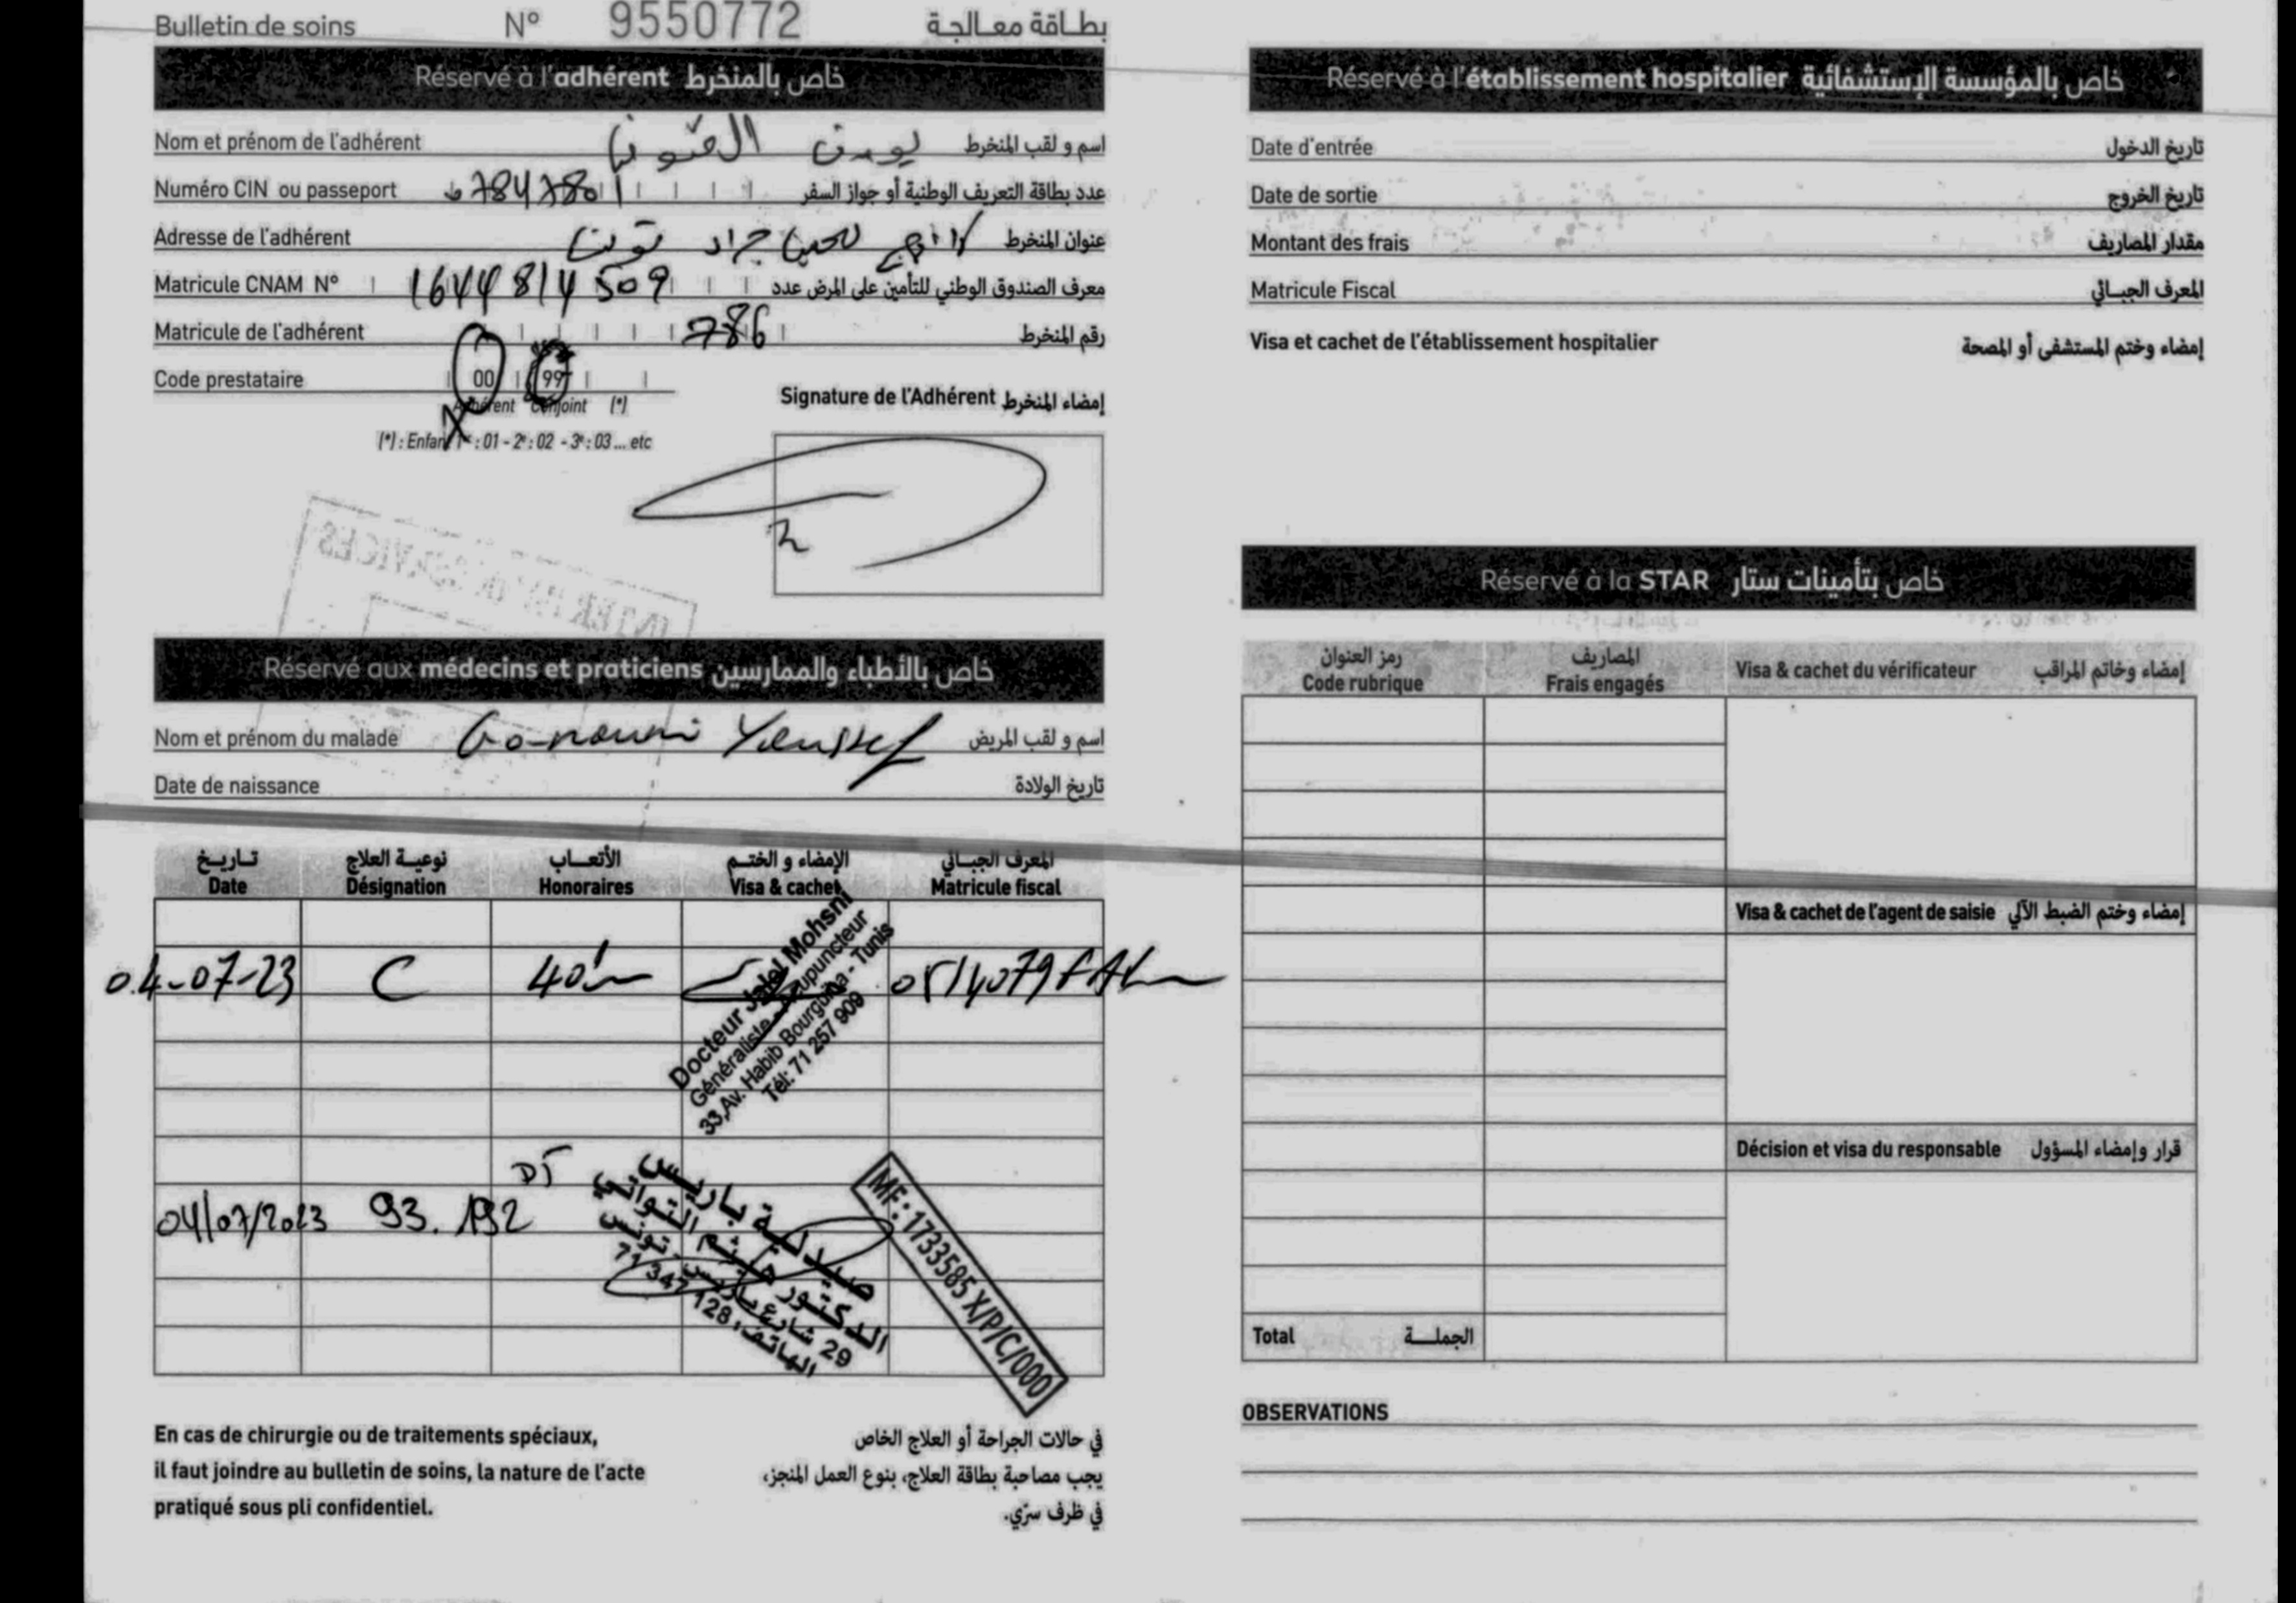 Bulletin de soins N° 9550772 بطاقة معالجة
Réservé à l'adhérent خاص بالمنخرط
Nom et prénom de l'adhérent يوسف القنوني اسم و لقب المنخرط
Numéro CIN ou passeport 67847801 عدد بطاقة التعريف الوطنية أو جواز السفر
Adresse de l'adhérent جراد تونس عنوان المنخرط
Matricule CNAM N° 1644814509 معرف الصندوق الوطني للتأمين على المرض عدد
Matricule de l'adhérent 786 رقم المنخرط
Code prestataire 00 99
Adhérent Conjoint (*)
(*) : Enfant 1er : 01 - 2e : 02 - 3e : 03 ... etc
Signature de l'Adhérent إمضاء المنخرط
Réservé aux médecins et praticiens خاص بالأطباء والممارسين
Nom et prénom du malade Ganouni Youssef اسم و لقب المريض
Date de naissance تاريخ الولادة
تاريخ نوعية العلاج الأتعاب الإمضاء و الختم المعرف الجبائي
Date Désignation Honoraires Visa & cachet Matricule fiscal
04-07-23 C 40
Docteur Jalel Mohsni
Généraliste - Acupuncteur
33,Av. Habib Bourguiba - Tunis
Tél: 71 257 909
04/07/2023 93.192 DT
صيدلية باريس
الدكتور هيثم التواتي
29 شارع باريس - تونس
الهاتف: 71 347 128
MF: 1733585 X/P/C/000
En cas de chirurgie ou de traitements spéciaux,
il faut joindre au bulletin de soins, la nature de l'acte
pratiqué sous pli confidentiel.
في حالات الجراحة أو العلاج الخاص
يجب مصاحبة بطاقة العلاج، بنوع العمل المنجز،
في ظرف سرّي.
Réservé à l'établissement hospitalier خاص بالمؤسسة الإستشفائية
Date d'entrée تاريخ الدخول
Date de sortie تاريخ الخروج
Montant des frais مقدار المصاريف
Matricule Fiscal المعرف الجبائي
Visa et cachet de l'établissement hospitalier إمضاء وختم المستشفى أو المصحة
Réservé à la STAR خاص بتأمينات ستار
رمز العنوان المصاريف
Code rubrique Frais engagés Visa & cachet du vérificateur إمضاء وخاتم المراقب
Visa & cachet de l'agent de saisie إمضاء وختم الضبط الآلي
Décision et visa du responsable قرار وإمضاء المسؤول
Total الجملة
OBSERVATIONS